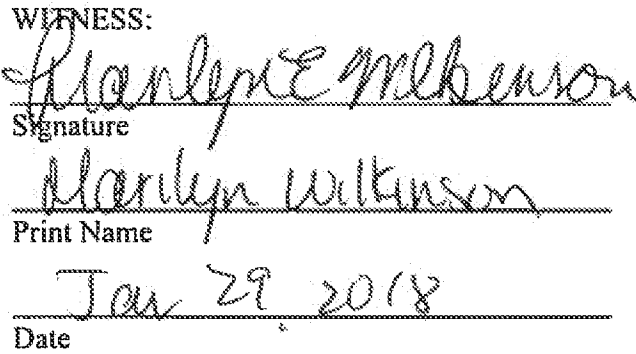 WITNESS:
Marilyn E Wilkinson
Signature
Marilyn Wilkinson
Print Name
Jan 29, 2018
Date